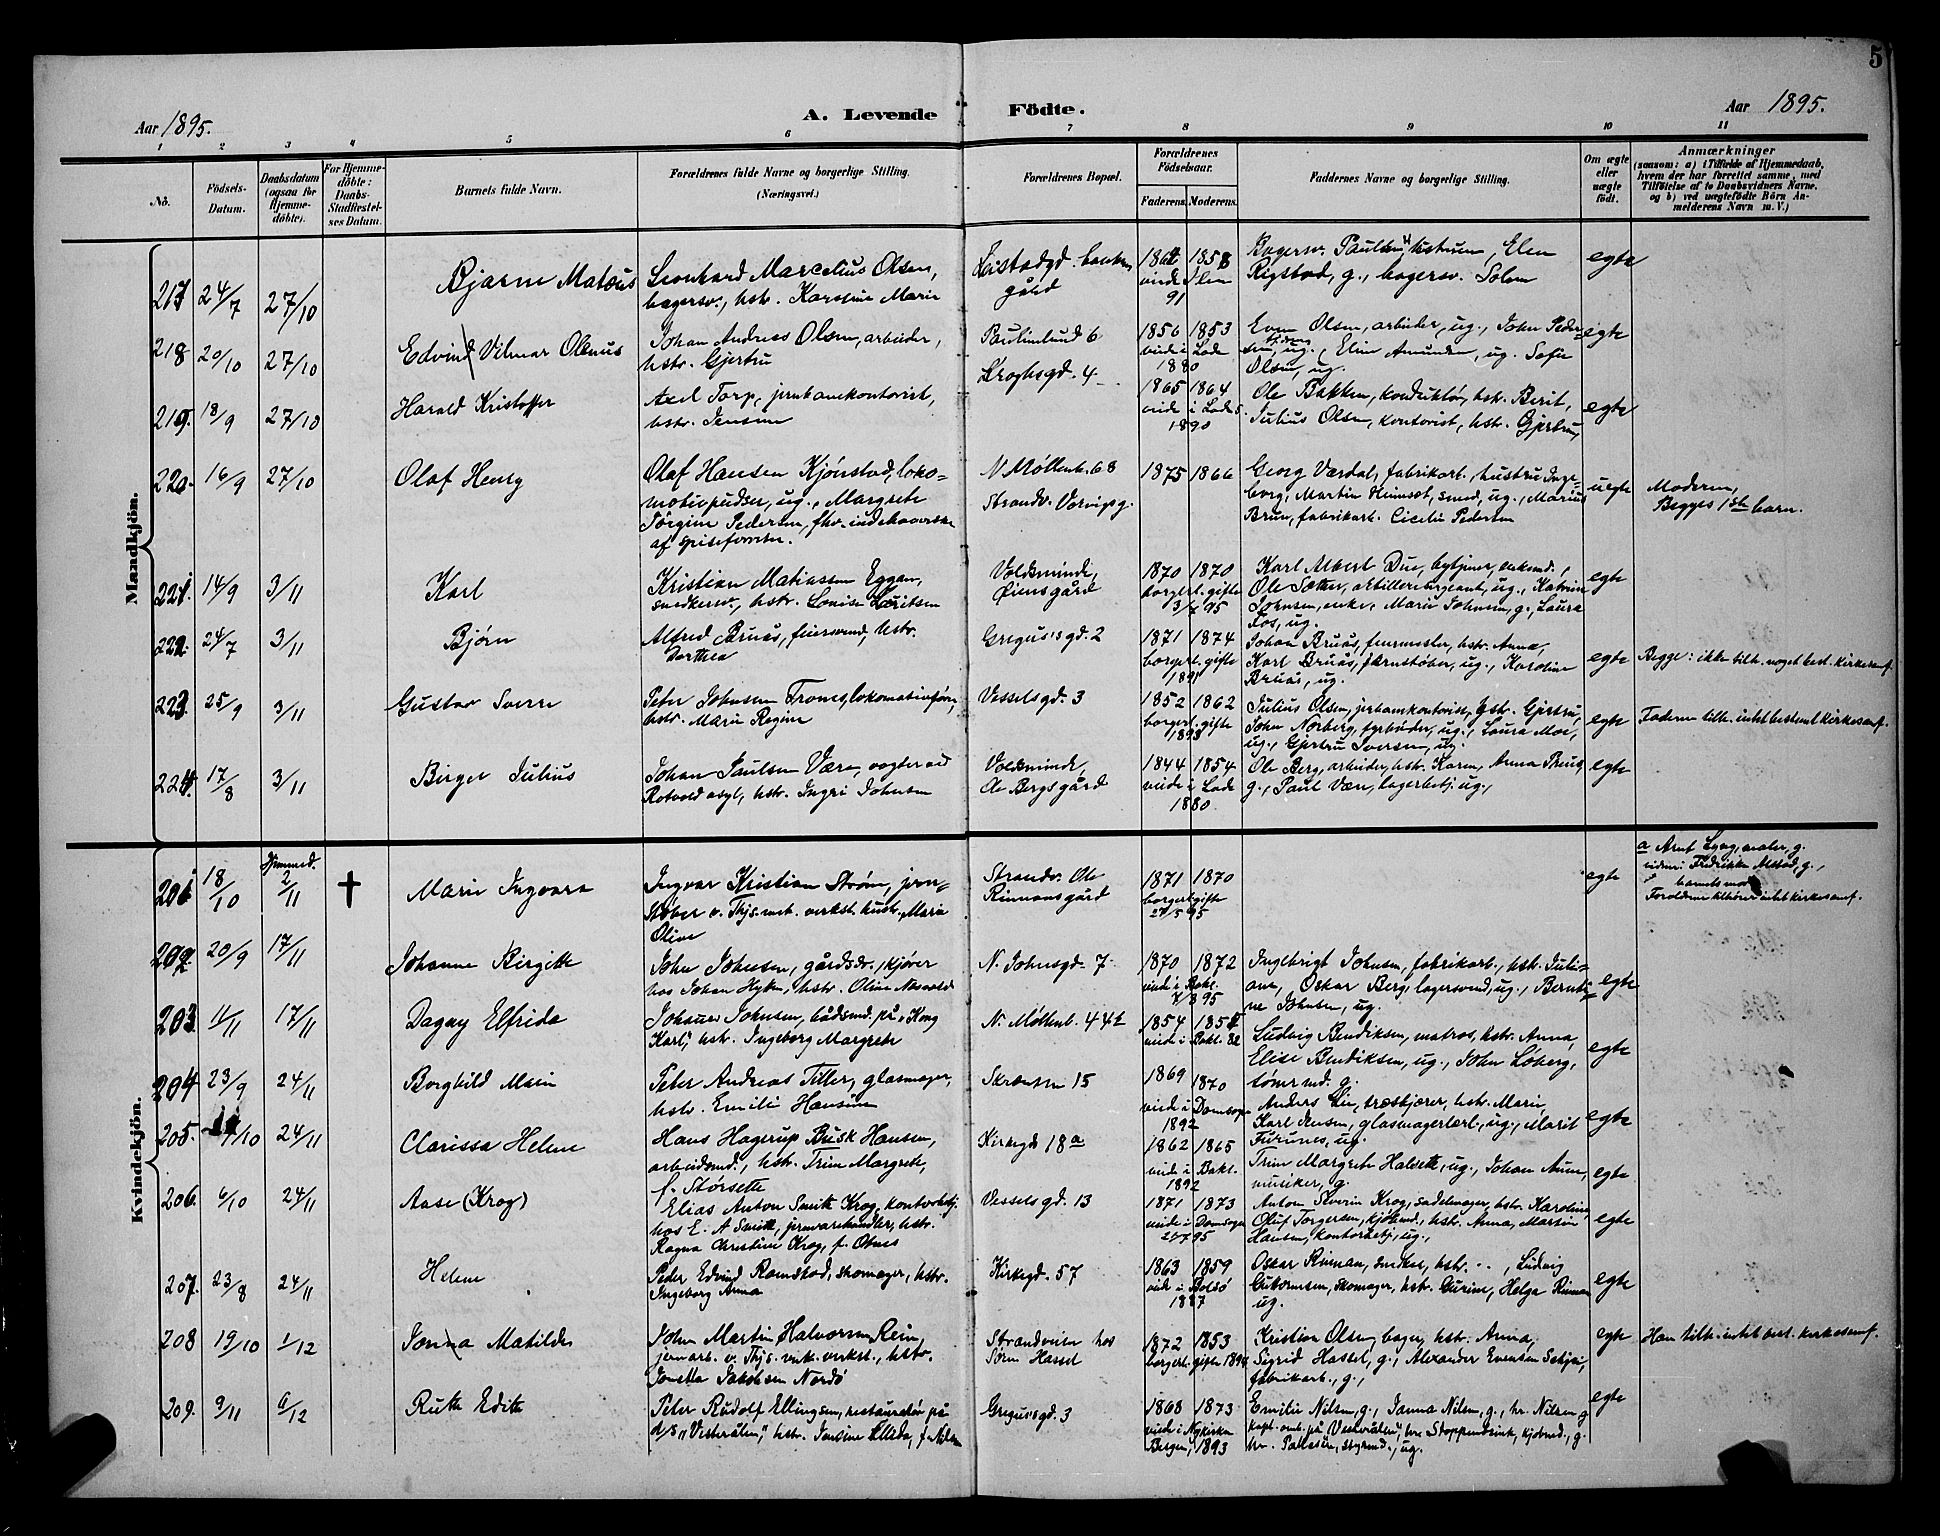 5
Aar 1895.
A. Levende Födte.
Aar 1895.
1 2 3 4 5 6 7 8 9 10 11
No.
Födsels-
Datum.
Daabsdatum
(ogsaa for
Hjemme-
döbte).
For Hjemme-
döbte:
Daabs-
Stadfæstel-
ses Datum.
Barnets fulde Navn.
Forældrenes fulde Navne og borgerlige Stilling.
(Næringsvei.)
Forældrenes Bopæl.
Forældrenes
Födselsaar.
Faderens. Moderens.
Faddernes Navne og borgerlige Stilling.
Om ægte
eller
uægte
födt.
Anmærkninger
(saasom: a) i Tilfælde af Hjemmedaab,
hvem der har forrettet samme, med
Tilföielse af to Daabsvidners Navne,
og b) ved uægtefödte Börn An-
melderens Navn m. V.)
Mandkjön.
217 24/7 27/10
Bjarne Matæus
Leonhard Marcelius Olsen,
bagersv., hstr. Karstine Marie
gård
1858
viede i Ilen
91
Rigstad, g., bagersv. Solem
egte
218 20/10 27/10
Edvind Vilmar Olenus
Johan Andreas Olsen, arbeider,
hstr. Gjertru
Paulinelund 6
1856 1853
viede i Lade
1880
Even Olsen, arbeider, ug., John Peder-
sen, ug., Elin Amundsen, ug. Sofie
Olsen, ug.
egte
219. 18/9 27/10
Harald Kristoffer
Axel Torp, jernbanekontorist,
hstr. Jensine
Kroghsgd. 4
1865 1864
viede i Lade
1890
Ole Bakken, konduktör, hstr. Berit,
Julius Olsen, kontorist, hstr. Gjertru,
egte
220. 16/9 27/10
Olaf Henry
Olaf Hansen Kjønstad, loko-
motivpudser, ug., Margrete
Jörgine Pedersen, fhv. indehaverske
af spiseforretn.
N. Møllenb. 68
Strandv.
1875 1866
Georg Værdal, fabrikarb., hustru Inge-
borg, Martin Heimset, smed, ug., Marius
Brun, fabrikarb. Cecilie Pedersen
uegte
Moderen,
Begges 1ste barn.
221. 14/9 3/11
Karl
Kristian Matiassen Eggan,
snedkersv., hstr. Lovise Lauritsen
Voldsminde,
Øiensgård
1870 1870
borgerl. gifte
95
Karl Albert Due, bytjener, enkemd.,
Ole Sæther, artillerisergeant, ug., Katrine
Johnsen, enke, Marie Johnsen, g., Laura
Fos, ug.
egte
222. 24/7 3/11
Bjørn
Alfred Bruås, feiersvend, hstr.
Dorthea
Gregus's gd. 2
1871 1874
borgerl. gifte
1891
Johan Bruås, feiermester, hstr. Anna,
Karl Bruås, jernstøber, ug., Karoline
Bruås, ug.
egte
Begge: ikke tilh. noget best. kirkesamf.
223. 25/9 3/11
Gustav Sverre
Peter Johnsen Trones, lokomotivfører,
hstr. Marie Regine
Vesselsgd. 3
1852 1862
borgerl. gifte
1893
Julius Olsen, jernbanekontorist, hstr. Gjertru,
John Norberg, fyrbøder, ug., Laura Moe,
ug., Gjertru Iversen, ug.
egte
Faderen tilh. intet bestemt kirkesamf.
224. 17/8 3/11
Birger Julius
Johan Paulsen Være, vogter ved
Rotvold asyl, hstr. Ingri Johnsen
Voldsminde,
Ole Bergsgård
1844 1854
viede i Lade
1880.
Ole Berg, arbeider, hstr. Karen, Anna Bruås,
g., Paul Være, lagerbetj. ug.,
egte
Kvindekjön.
201 18/10 Hjemmed. 2/11 †
Marie Ingvara
Ingvar Kristian Strøm, jern-
støber v. Thjs. mek. verkst. hustr. Marie
Oline
Strandv. Ole
Rinnansgård
1871 1870
borgerl. gifte
95
egte
a Arnt Lyng, maler, g.
vidne: Fredrikke Alstad, g.,
barnets mor
Forældrene tilhører intet kirkesamf.
202. 20/9 17/11
Johanne Birgitte
John Johnsen, gårdsdr., kjører
hos Johan Hyken, hstr. Oline
N. Johnsgd. 7
1870 1872
viede i Bakl.
95
Ingebrigt Johnsen, fabrikarb., hstr. Juli-
ane, Oskar Berg, lagersvend, ug., Bernti-
ne Johnsen, ug.
egte
203. 11/11 17/11
Dagny Elfrida
Johannes Johnsen, bådsmd. på „Kong
Karl", hstr. Ingeborg Margrete
N. Møllenb. 44
1854
viede i Bakl. 82
Ludvig Bendiksen, matros, hstr. Anna,
Elise Bendiksen, ug., John Løberg,
tømrmd. g.
egte
204 23/9 24/11
Borghild Marie
Peter Andreas Tiller, glasmager,
hstr. Emilie Hansine
Skrænten 15
1869 1870
viede i Domsogn
1892
Anders Lie, træskjærer, hstr. Marie,
Karl Jensen, glasmagerlærl., ug., Marit
Furunes, ug.
egte
205. 24/11
Clarissa Helene
Hans Hagerup Busk Hansen,
arbeidsmd., hstr. Trine Margrete,
f. Størsette
Kirkegd. 18a
1862 1865
viede i Bakl.
1892
Trine Margrete Halsette, ug., Johan Aune,
musiker, g.
egte
206. 6/10 24/11
Aase (Krog)
Elias Anton Smith Krog, kontorbetj.
hos E. A Smith, jernvarehandler, hstr.
Ragna Christine Krog, f. Otnes
Vesselsgd. 13
1871 1873
viede i Domsogn
95
Anton Severin Krog, sadelmager, hstr. Karoline,
Oluf Torgersen, kjøbmd., hstr. Anna, Martin
Hansen, kontorbetj., ug.,
egte
207. 23/8 24/11
Helene
Peder Edvind Ramstad, skomager, hstr.
Ingeborg Anna
Kirkegd. 57
1863 1859
viede i Bolsö
1887
Oskar Rinnan, snedker, hstr. .., Ludvig
Guttormsen, skomager, hstr. Gurine, Helga Rinnan
ug.
egte
208 19/10 1/12
Jonna Matilde
John Martin Halvorsen Rein,
jernarb. v. Thjs. mek. verkst., hstr.
Jonetta Jakobsen Nordö
Strandveien hos
Sørn Hassel
1872 1853
borgerl. gifte 1894
Kristian Olsen, bager, hstr. Anna,
Sigrid Hassel, g., Alexander Evensen
fabrikarb., g.,
egte
Han tilh. intet best. kirkesamf.
209. 9/11 6/12
Ruth Edith
Peter Rudolf Ellingsen, restauratør på
d/s „Vesterålen", hstr. Jensine Elida, f. Nilsen
Gregus's gd. 3
1868 1873
viede i Nykirken
Bergen, 1893
Emilie Nilsen, g., Janna Nilsen, g., hr. Nilsen g
kapt. omb. på Vesterålen, hr. Stoppenbrink, kjøbmd., g.
hr. Pallesen, styrmd., ug.
egte